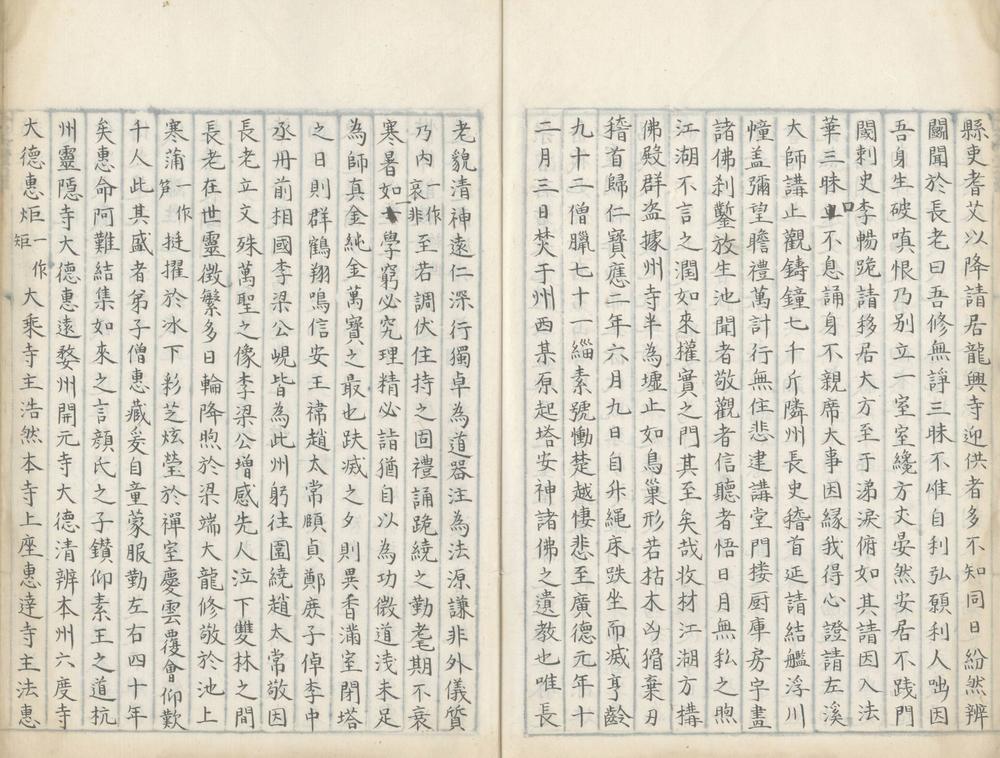 縣吏耆艾以降請居龍興寺迎供者多不知同日紛然辨
鬭聞於長老曰吾修無諍三昧不惟自利弘願利人咄因
吾身生破嗔恨乃别立一室室纔方丈晏然安居不踐門
閾刺史李暢跪請移居大方至于涕淚俯如其請因入法
華三昧口不息誦身不親席大事因緣我得心證請左溪
大師講止觀鑄鐘七千斤隣州長史稽首延請結艦浮川
幢盖彌望瞻禮萬計行無住悲建講堂門搂厨庫房宇畫
諸佛刹鑿放生池聞者敬觀者信聽者悟日月無私之煦
江湖不言之潤如來權實之門其至矣哉收材江湖方搆
佛殿群盗據州寺半為墟止如鳥巢形若枯木凶猾棄刃
稽首歸仁寶應二年六月九日自升繩床趺坐而滅享齡
九十二僧臘七十一緇素號慟楚越悽悲至廣德元年十
二月三日焚于州西某原起塔安神諸佛之遺教也唯長
老貌清神遠仁深行獨卓為道器注為法源謙非外儀質
乃内哀一作非至若調伏住持之固禮誦跪繞之勤耄期不衰
寒暑如一學窮必究理精必詣猶自以為功微道浅未足
為師真金純金萬寶之最也趺滅之夕則異香滿室閉塔
之日則群鶴翔鳴信安王禕趙太常頤貞鄭庶子倬李中
丞丹前相國李梁公峴皆為此州躬往圍繞趙太常敬因
長老立文殊萬聖之像李梁公增感先人泣下雙林之間
長老在世靈徵繁多日輪降煦於梁端大龍修敬於池上
寒蒲一作笋挺擢於冰下彩芝炫瑩於禪室慶雲覆會仰歎
千人此其盛者弟子僧惠藏爰自童蒙服勤左右四十年
矣惠命阿難結集如來之言顔氏之子鑚仰素王之道杭
州靈隱寺大德惠遠婺州開元寺大德清辨本州六度寺
大德惠炬一作矩大乘寺主浩然本寺上座惠達寺主法惠